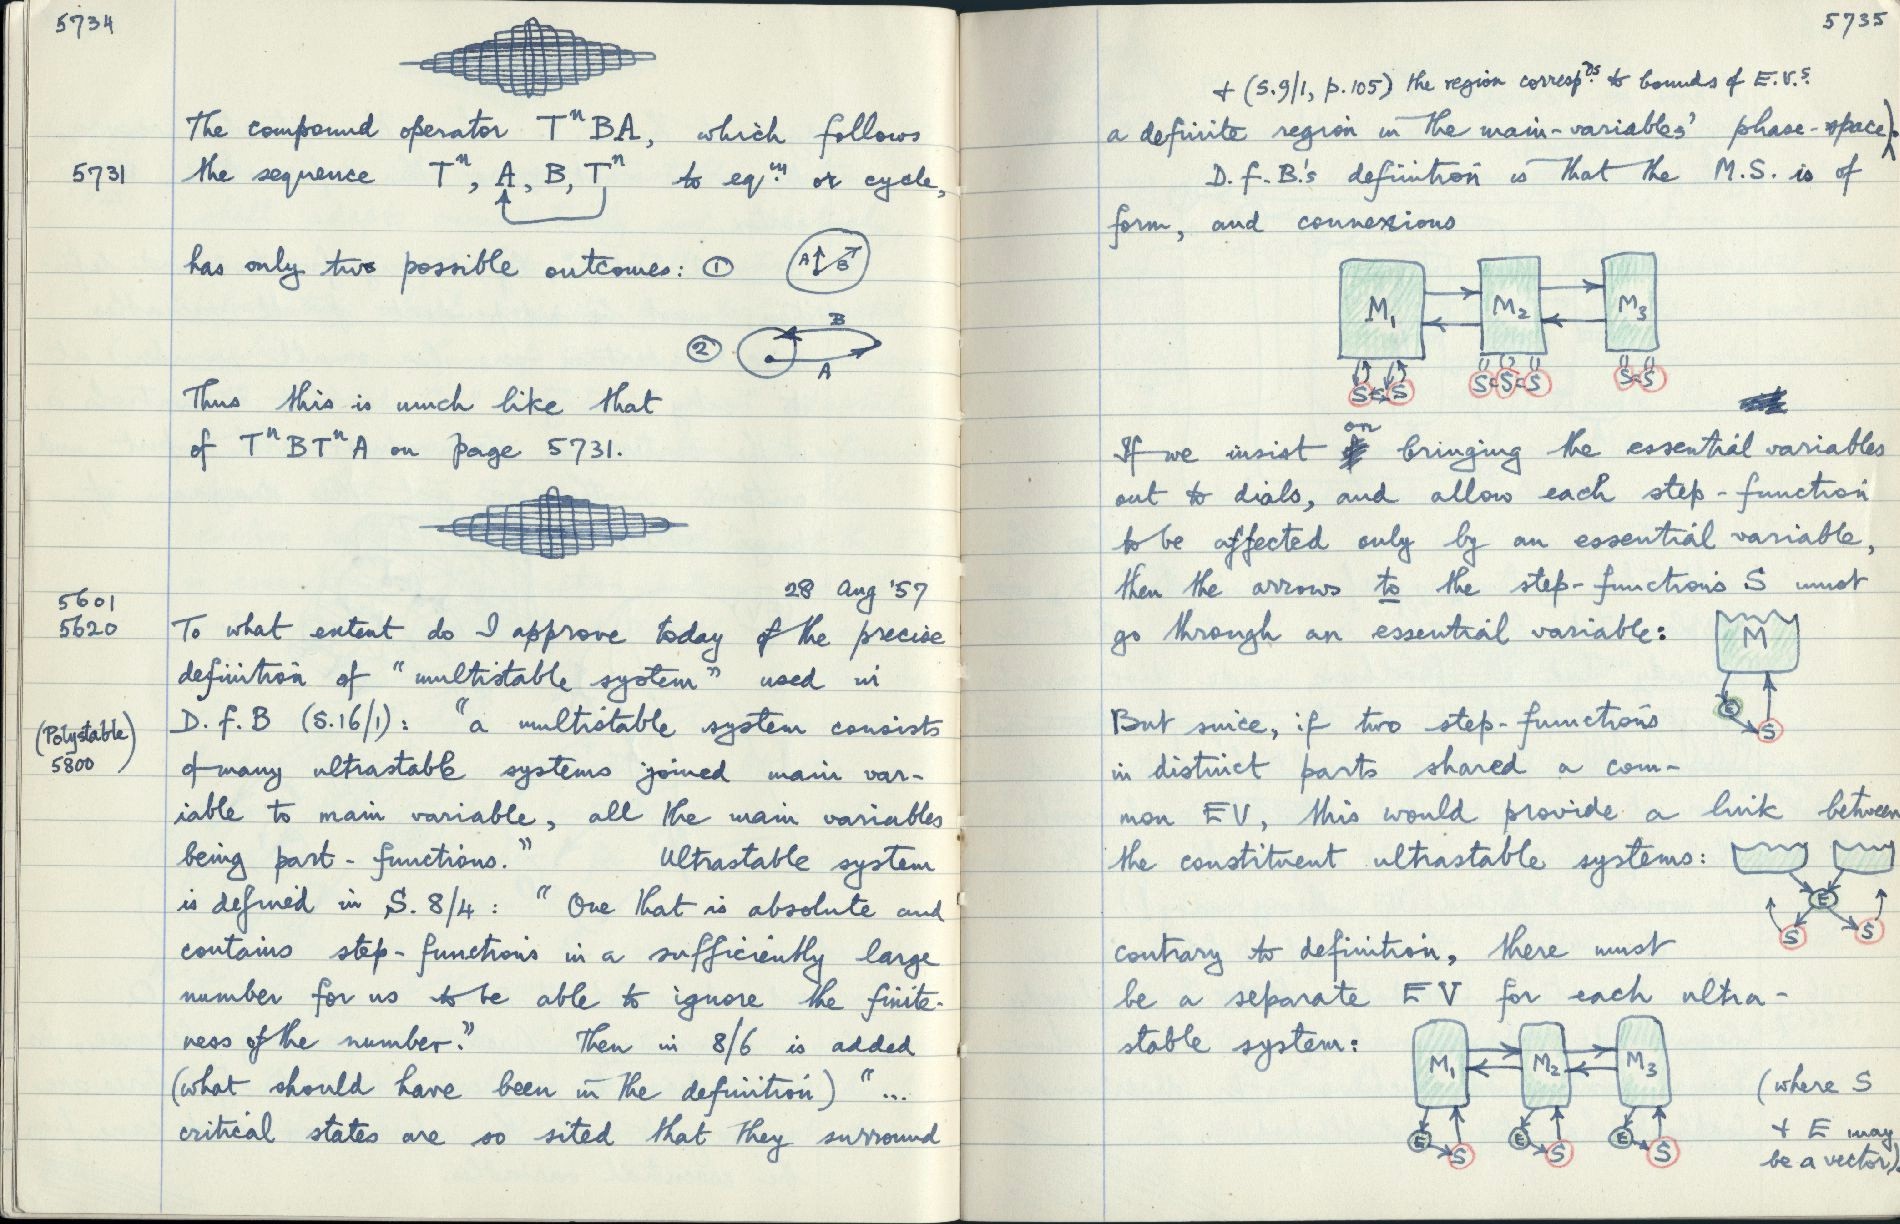 5734
The compound operator TⁿBA, which follows
5731 the sequence Tⁿ, A, B, Tⁿ to eqᵐ or cycle,
has only two possible outcomes: ①
A B
② B
A
Thus this is much like that
of TⁿBTⁿA on page 5731.
28 Aug '57
5601
5620 To what extent do I approve today of the precise
definition of "multistable system" used in
(Polystable 5800) D.f.B (S.16/1): "a multistable system consists
of many ultrastable systems joined main var-
iable to main variable, all the main variables
being part-functions." Ultrastable system
is defined in S. 8/4: "One that is absolute and
contains step-functions in a sufficiently large
number for us to be able to ignore the finite-
ness of the number." Then in 8/6 is added
(what should have been in the definition) "...
critical states are so sited that they surround
5735
+ (S.9/1, p.105) the region correspᵈˢ to bounds of E.V.ˢ.
a definite region in the main-variables' phase-space).
D.f.B.'s definition is that the M.S. is of
form, and connexions
M₁ M₂ M₃
S S S S S S S
If we insist on bringing the essential variables
out to dials, and allow each step-function
to be affected only by an essential variable,
then the arrows to the step-functions S must
go through an essential variable:
M
E
S
But since, if two step-functions
in distinct parts shared a com-
mon EV, this would provide a link between
the constituent ultrastable systems:
E
S S
contrary to definition, there must
be a separate EV for each ultra-
stable system:
M₁ M₂ M₃
E S E S E S
(where S
+ E may
be a vector).